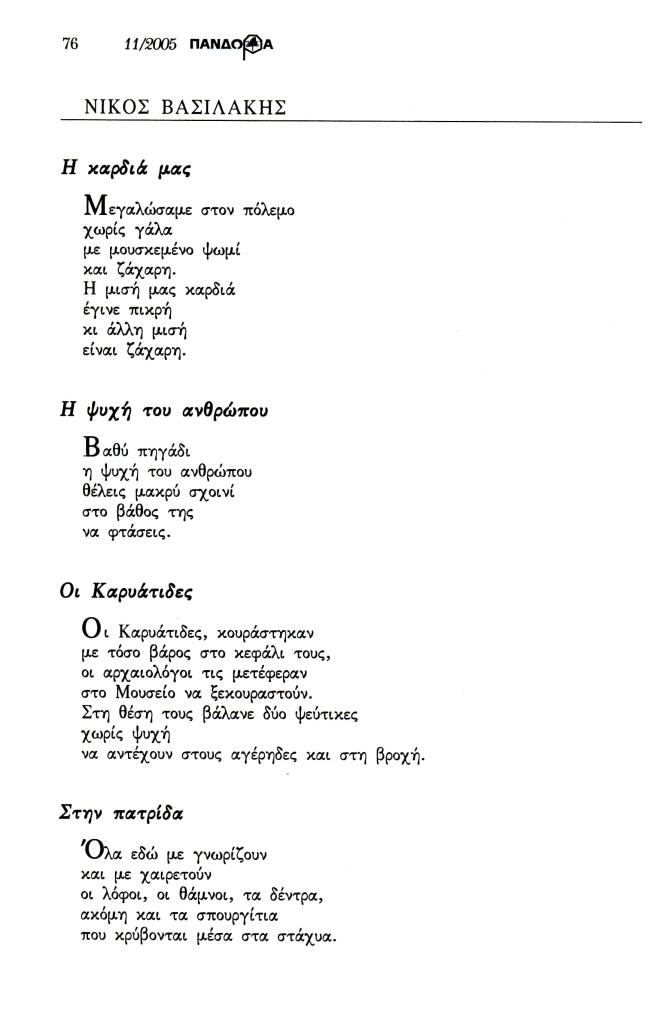 76 11/2005 ΠΑΝΔΟΡΑ
ΝΙΚΟΣ ΒΑΣΙΛΑΚΗΣ
Η καρδιά μας
Μεγαλώσαμε στον πόλεμο
χωρίς γάλα
με μουσκεμένο ψωμί
και ζάχαρη.
Η μισή μας καρδιά
έγινε πικρή
κι άλλη μισή
είναι ζάχαρη.
Η ψυχή του ανθρώπου
Βαθύ πηγάδι
η ψυχή του ανθρώπου
θέλεις μακρύ σχοινί
στο βάθος της
να φτάσεις.
Οι Καρυάτιδες
Οι Καρυάτιδες, κουράστηκαν
με τόσο βάρος στο κεφάλι τους,
οι αρχαιολόγοι τις μετέφεραν
στο Μουσείο να ξεκουραστούν.
Στη θέση τους βάλανε δύο ψεύτικες
χωρίς ψυχή
να αντέχουν στους αγέρηδες και στη βροχή.
Στην πατρίδα
Όλα εδώ με γνωρίζουν
και με χαιρετούν
οι λόφοι, οι θάμνοι, τα δέντρα,
ακόμη και τα σπουργίτια
που κρύβονται μέσα στα στάχυα.